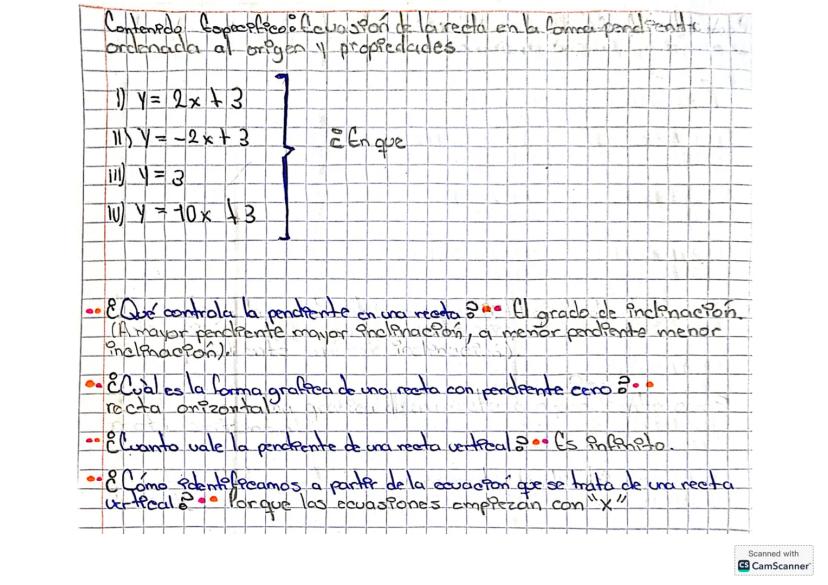 Contenido Especifico: Ecuasión de la recta en la forma pendiente
ordenada al origen y propiedades.
I) y = 2x + 3
II) y = -2x + 3
¿En que
III) y = 3
IV) y = 10x + 3
¿Qué controla la pendiente en una recta? El grado de inclinación.
(A mayor pendiente mayor inclinación, a menor pendiente menor
inclinación).
¿Cuàl es la forma grafica de una recta con pendiente cero?
recta orizontal.
¿Cuanto vale la pendiente de una recta vertical? Es infinito.
¿Cómo identificamos a partir de la ecuación que se trata de una recta
vertical? Porque las ecuasiones empiezan con "x"
Scanned with
CS CamScanner